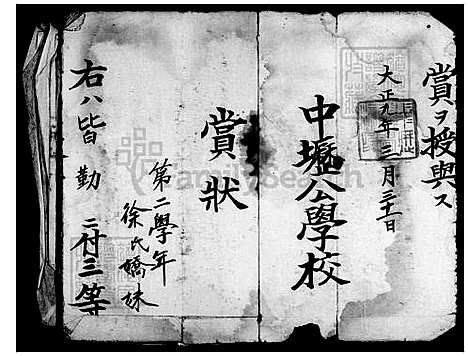 賞ヲ授與ス
大正九年三月三十一日
中壢公學校
賞狀
第二學年
徐氏嬌妹
右ハ皆勤ニ付三等
FamilySearch